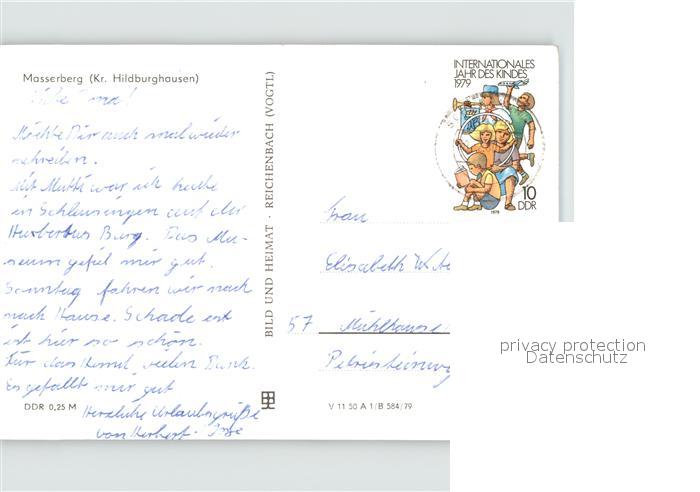 Masserberg (Kr. Hildburghausen)
Liebe Oma!
Möchte Dir auch mal wieder
schreiben.
Mit Mutti war ich heute
in Schleusingen auf der
Burg. Das Mu-
seum gefiel mir gut.
Sonntag fahren wir nach
nach Hause. Schade es ist
ist hier so schön.
Für das Hemd vielen Dank.
Es gefällt mir gut
Herzliche Urlaubsgrüße
von Herbert
DDR 0,25 M
BILD UND HEIMAT · REICHENBACH (VOGTL)
INTERNATIONALES
JAHR DES KINDES
1979
10
DDR
1979
Frau
Elisabeth
57 Mühlhause
V 11 50 A 1/B 584/79
privacy protection
Datenschutz